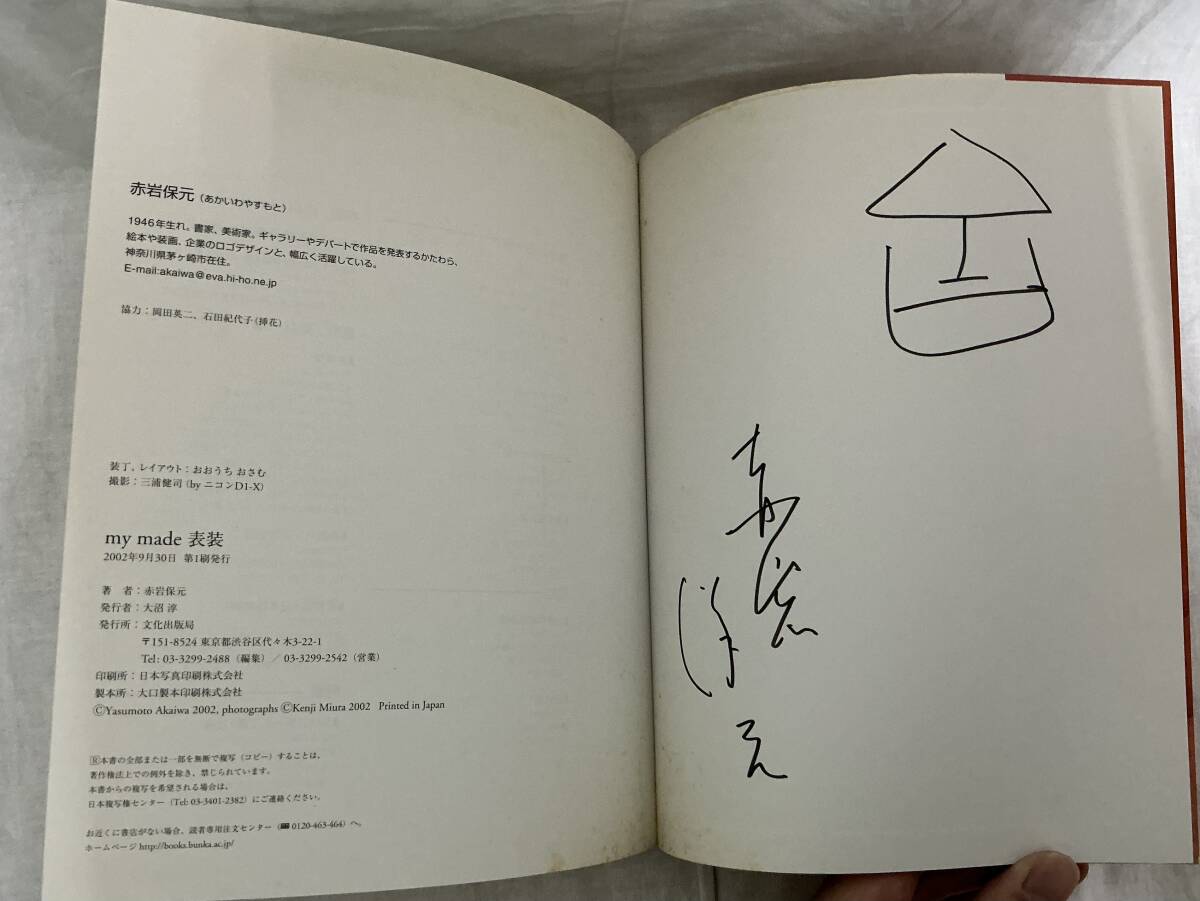 赤岩保元（あかいわやすもと）
1946年生れ。書家、美術家。ギャラリーやデパートで作品を発表するかたわら、
絵本や装画、企業のロゴデザインと、幅広く活躍している。
神奈川県茅ヶ崎市在住。
E-mail:akaiwa@eva.hi-ho.ne.jp
協力：岡田英二、石田紀代子（挿花）
装丁、レイアウト：おおうち おさむ
撮影：三浦健司（by ニコンD1-X）
my made 表装
2002年9月30日 第1刷発行
著　者：赤岩保元
発行者：大沼 淳
発行所：文化出版局
〒151-8524 東京都渋谷区代々木3-22-1
Tel: 03-3299-2488（編集）／03-3299-2542（営業）
印刷所：日本写真印刷株式会社
製本所：大口製本印刷株式会社
©Yasumoto Akaiwa 2002, photographs ©Kenji Miura 2002 Printed in Japan
Ⓡ本書の全部または一部を無断で複写（コピー）することは、
著作権法上での例外を除き、禁じられています。
本書からの複写を希望される場合は、
日本複写権センター（Tel: 03-3401-2382）にご連絡ください。
お近くに書店がない場合、読者専用注文センター（0120-463-464）へ。
ホームページ http://books.bunka.ac.jp/